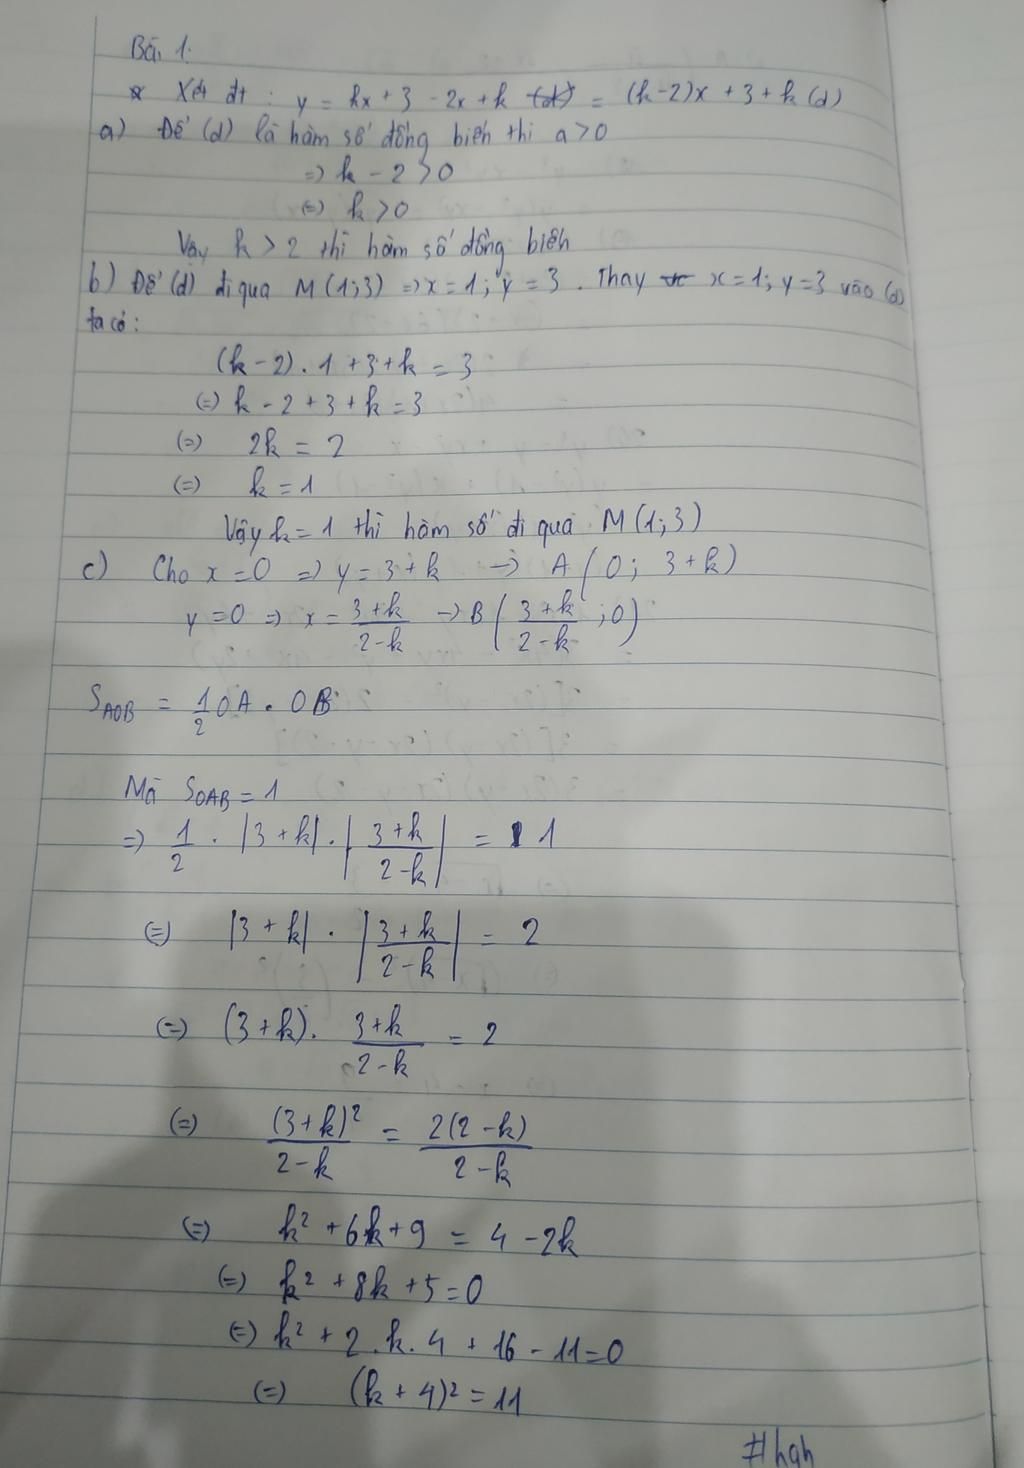 Bài 1.
* Xét đt : y = kx + 3 - 2x + k (d) = (k-2)x + 3 + k (d)
a) Để (d) là hàm số đồng biến thì a > 0
=> k - 2 > 0
(=) k > 0
Vậy k > 2 thì hàm số đồng biến
b) Để (d) đi qua M (1;3) => x = 1; y = 3. Thay x = 1; y = 3 vào (d)
ta có:
(k - 2) . 1 + 3 + k = 3
(=) k - 2 + 3 + k = 3
(=) 2k = 2
(=) k = 1
Vậy k = 1 thì hàm số đi qua M (1;3)
c) Cho x = 0 => y = 3 + k -> A (0; 3+k)
y = 0 => x = (3+k)/(2-k) -> B ((3+k)/(2-k) ; 0)
S_AOB = 1/2 OA . OB
Mà S_OAB = 1
=> 1/2 . |3+k| . |(3+k)/(2-k)| = 1
(=) |3+k| . |(3+k)/(2-k)| = 2
(=) (3+k) . (3+k)/(2-k) = 2
(=) (3+k)²/(2-k) = 2(2-k)/(2-k)
(=) k² + 6k + 9 = 4 - 2k
(=) k² + 8k + 5 = 0
(=) k² + 2.k.4 + 16 - 11 = 0
(=) (k + 4)² = 11
#hah